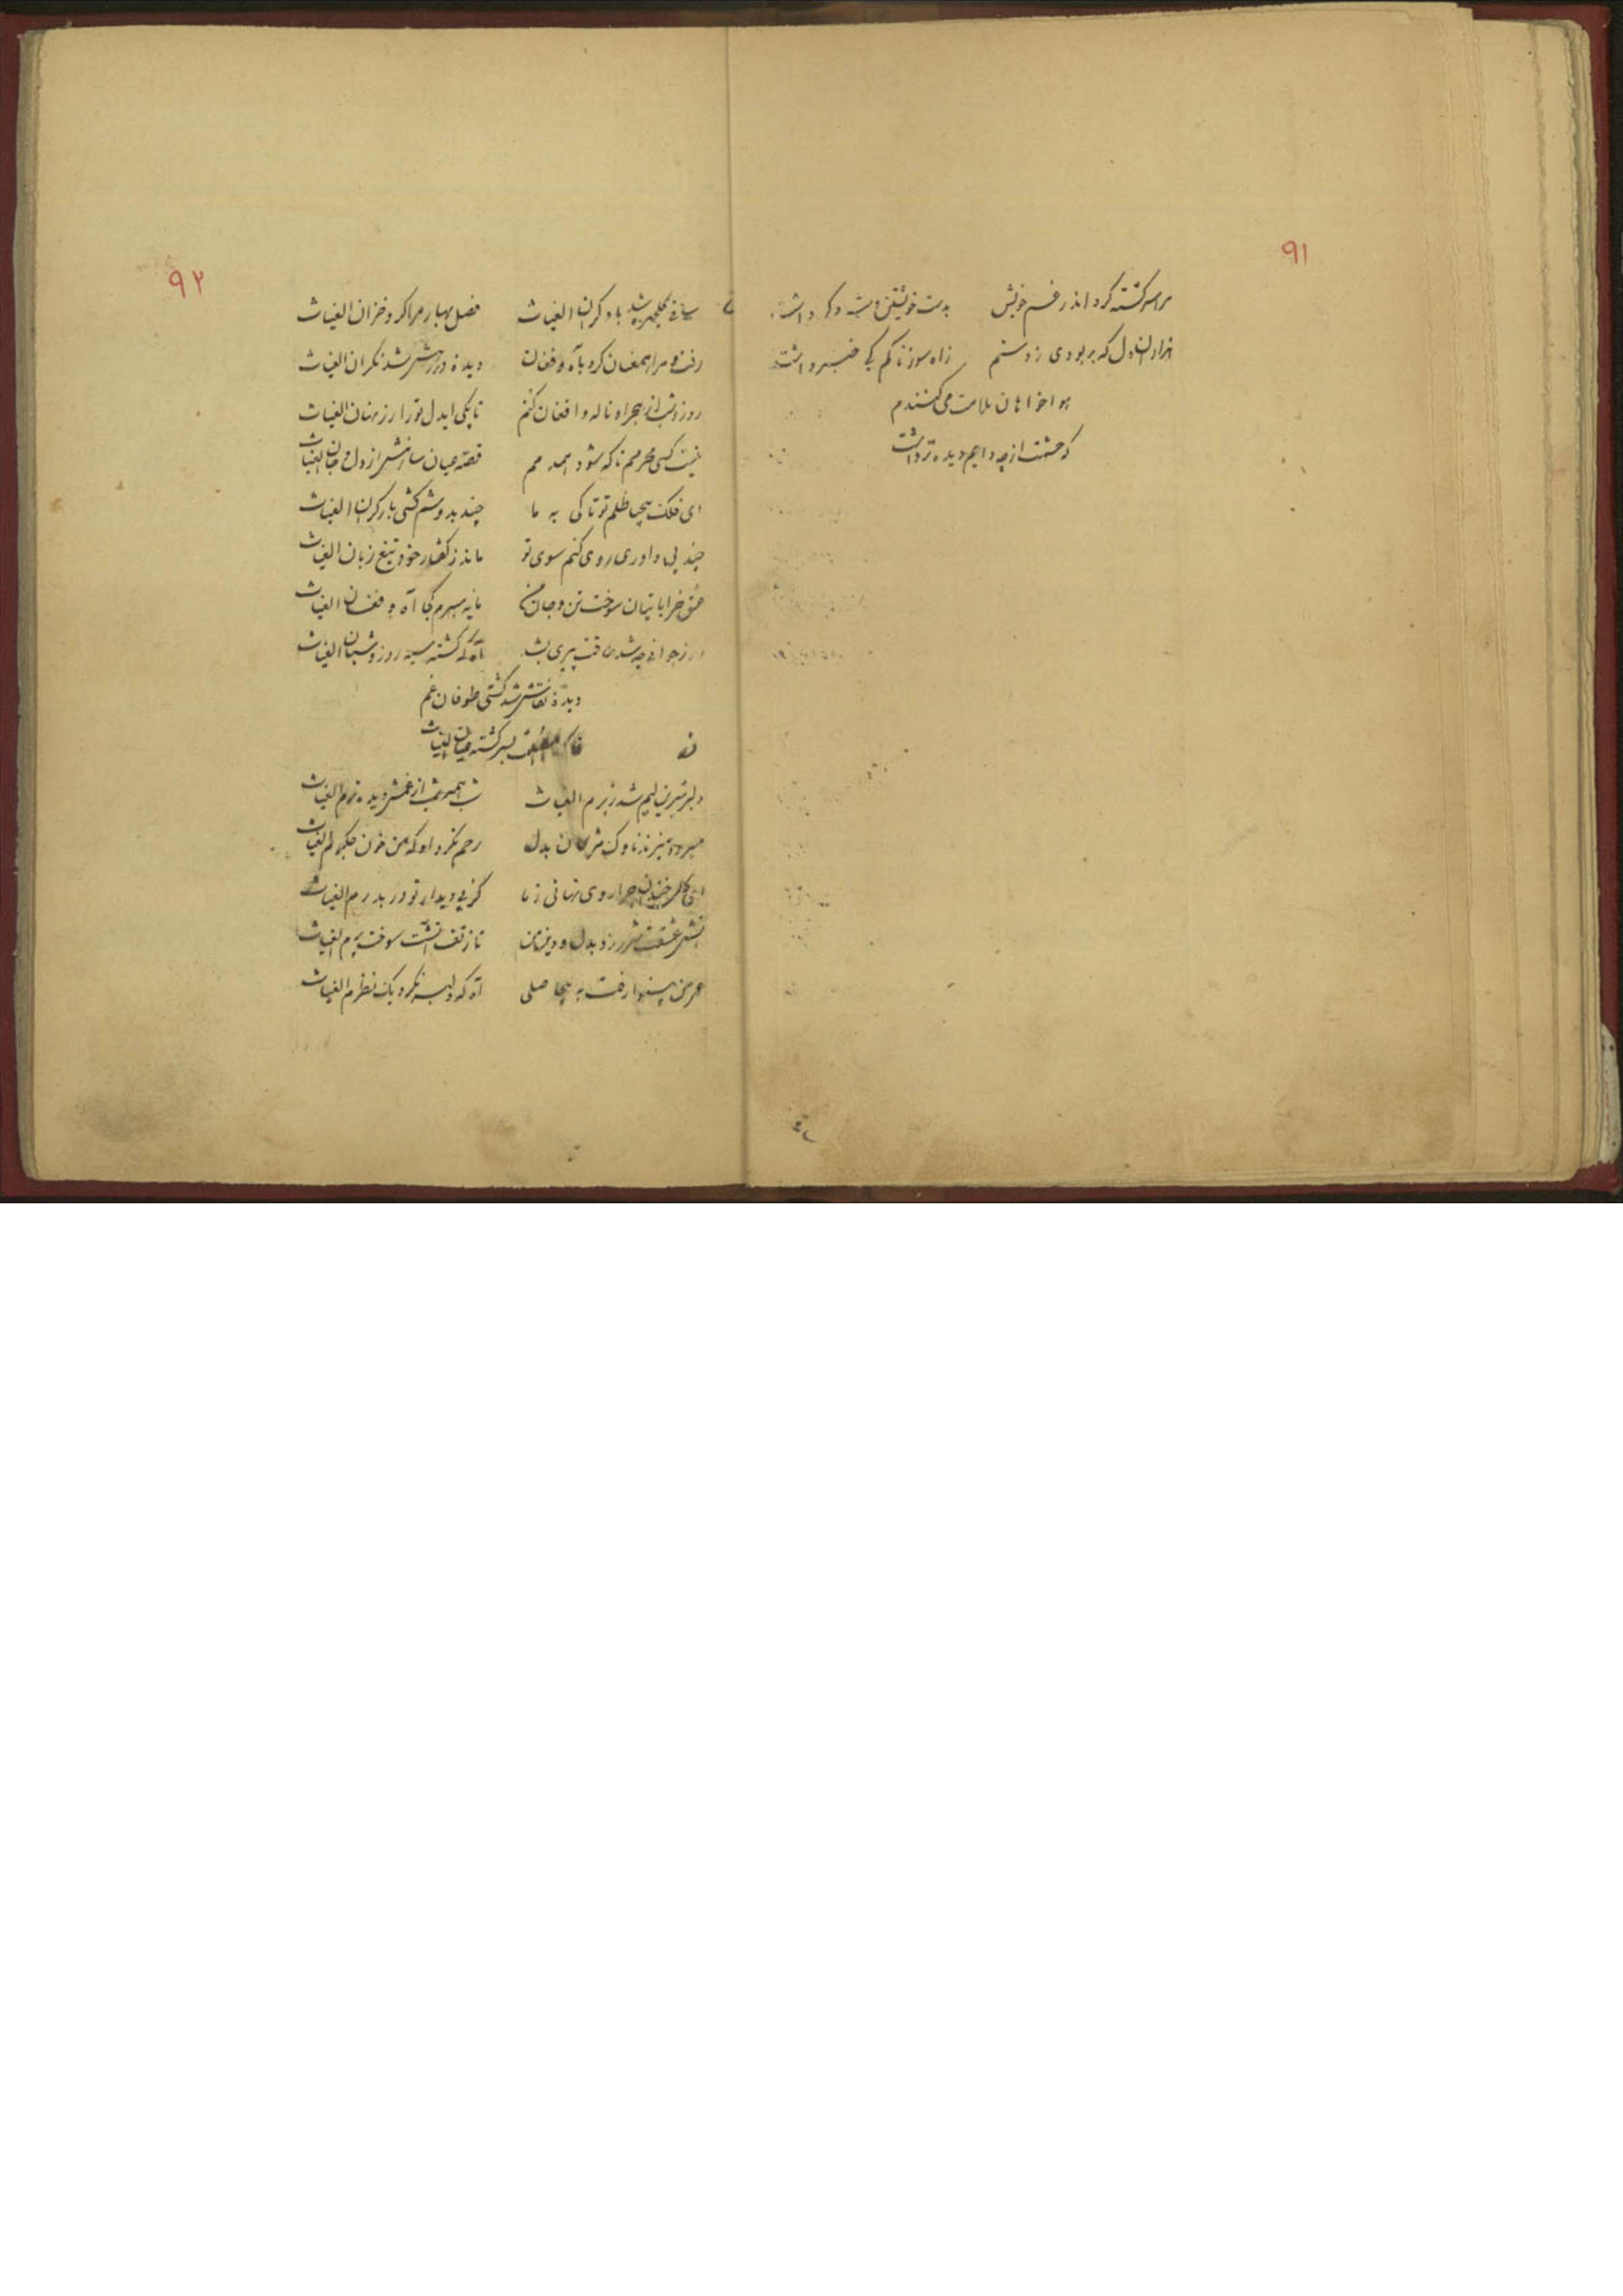 ۹۱
مرا سرگشته کرد اندر غم خویش بدست خویشتن دست داشت
هزاران دل که بربودی ز دستم ز آه سوزناکم کی خبر داشت
هواخواهان ملامت می کنندم
که حشمت از چه دایم دیده تر داشت
۹۲
ساقی گلچهر شد باد گران الغیاث فصل بهار مرا کرد خزان الغیاث
رفت و مرا همعنان کرد بآه و فغان دیده در رهش شد نگران الغیاث
روز و شب از هجر او ناله و افغان کنم تا بکی ایدل تو را راز نهان الغیاث
نیست کسی محرمم تا که شود همدمم قصه عیان سازمش از دل و جان الغیاث
ای فلک بیحیا ظلم تو تا کی به ما چند بدوشم کشی بار گران الغیاث
چند پی داوری روی کنم سوی تو ماند ز گفتار خود تیغ زبان الغیاث
عشق خراباتیان سوخت تن و جان من ما به برم کجا آه و فغان الغیاث
روز جوانی چه شد طاقت پیری آه که گشته سیه روز و شبان الغیاث
دیده شد کشتی طوفان غم
خاک بسر گشته الغیاث
دلبر شیرین لبم شد ز برم الغیاث شب همه شب از غمش دیده ترم الغیاث
میرود و میزند ناوک مژگان بدل رحم نکرد او که من خون جگرم الغیاث
ای گل خندان چرا روی نهانی ز ما کز پی دیدار تو در بدرم الغیاث
آتش عشقت شرر زد بدل و دین من تا ز تف آتشت سوخت پرم الغیاث
عمر من رفت به بیحاصلی آه که دلبر نکرد یک نظرم الغیاث